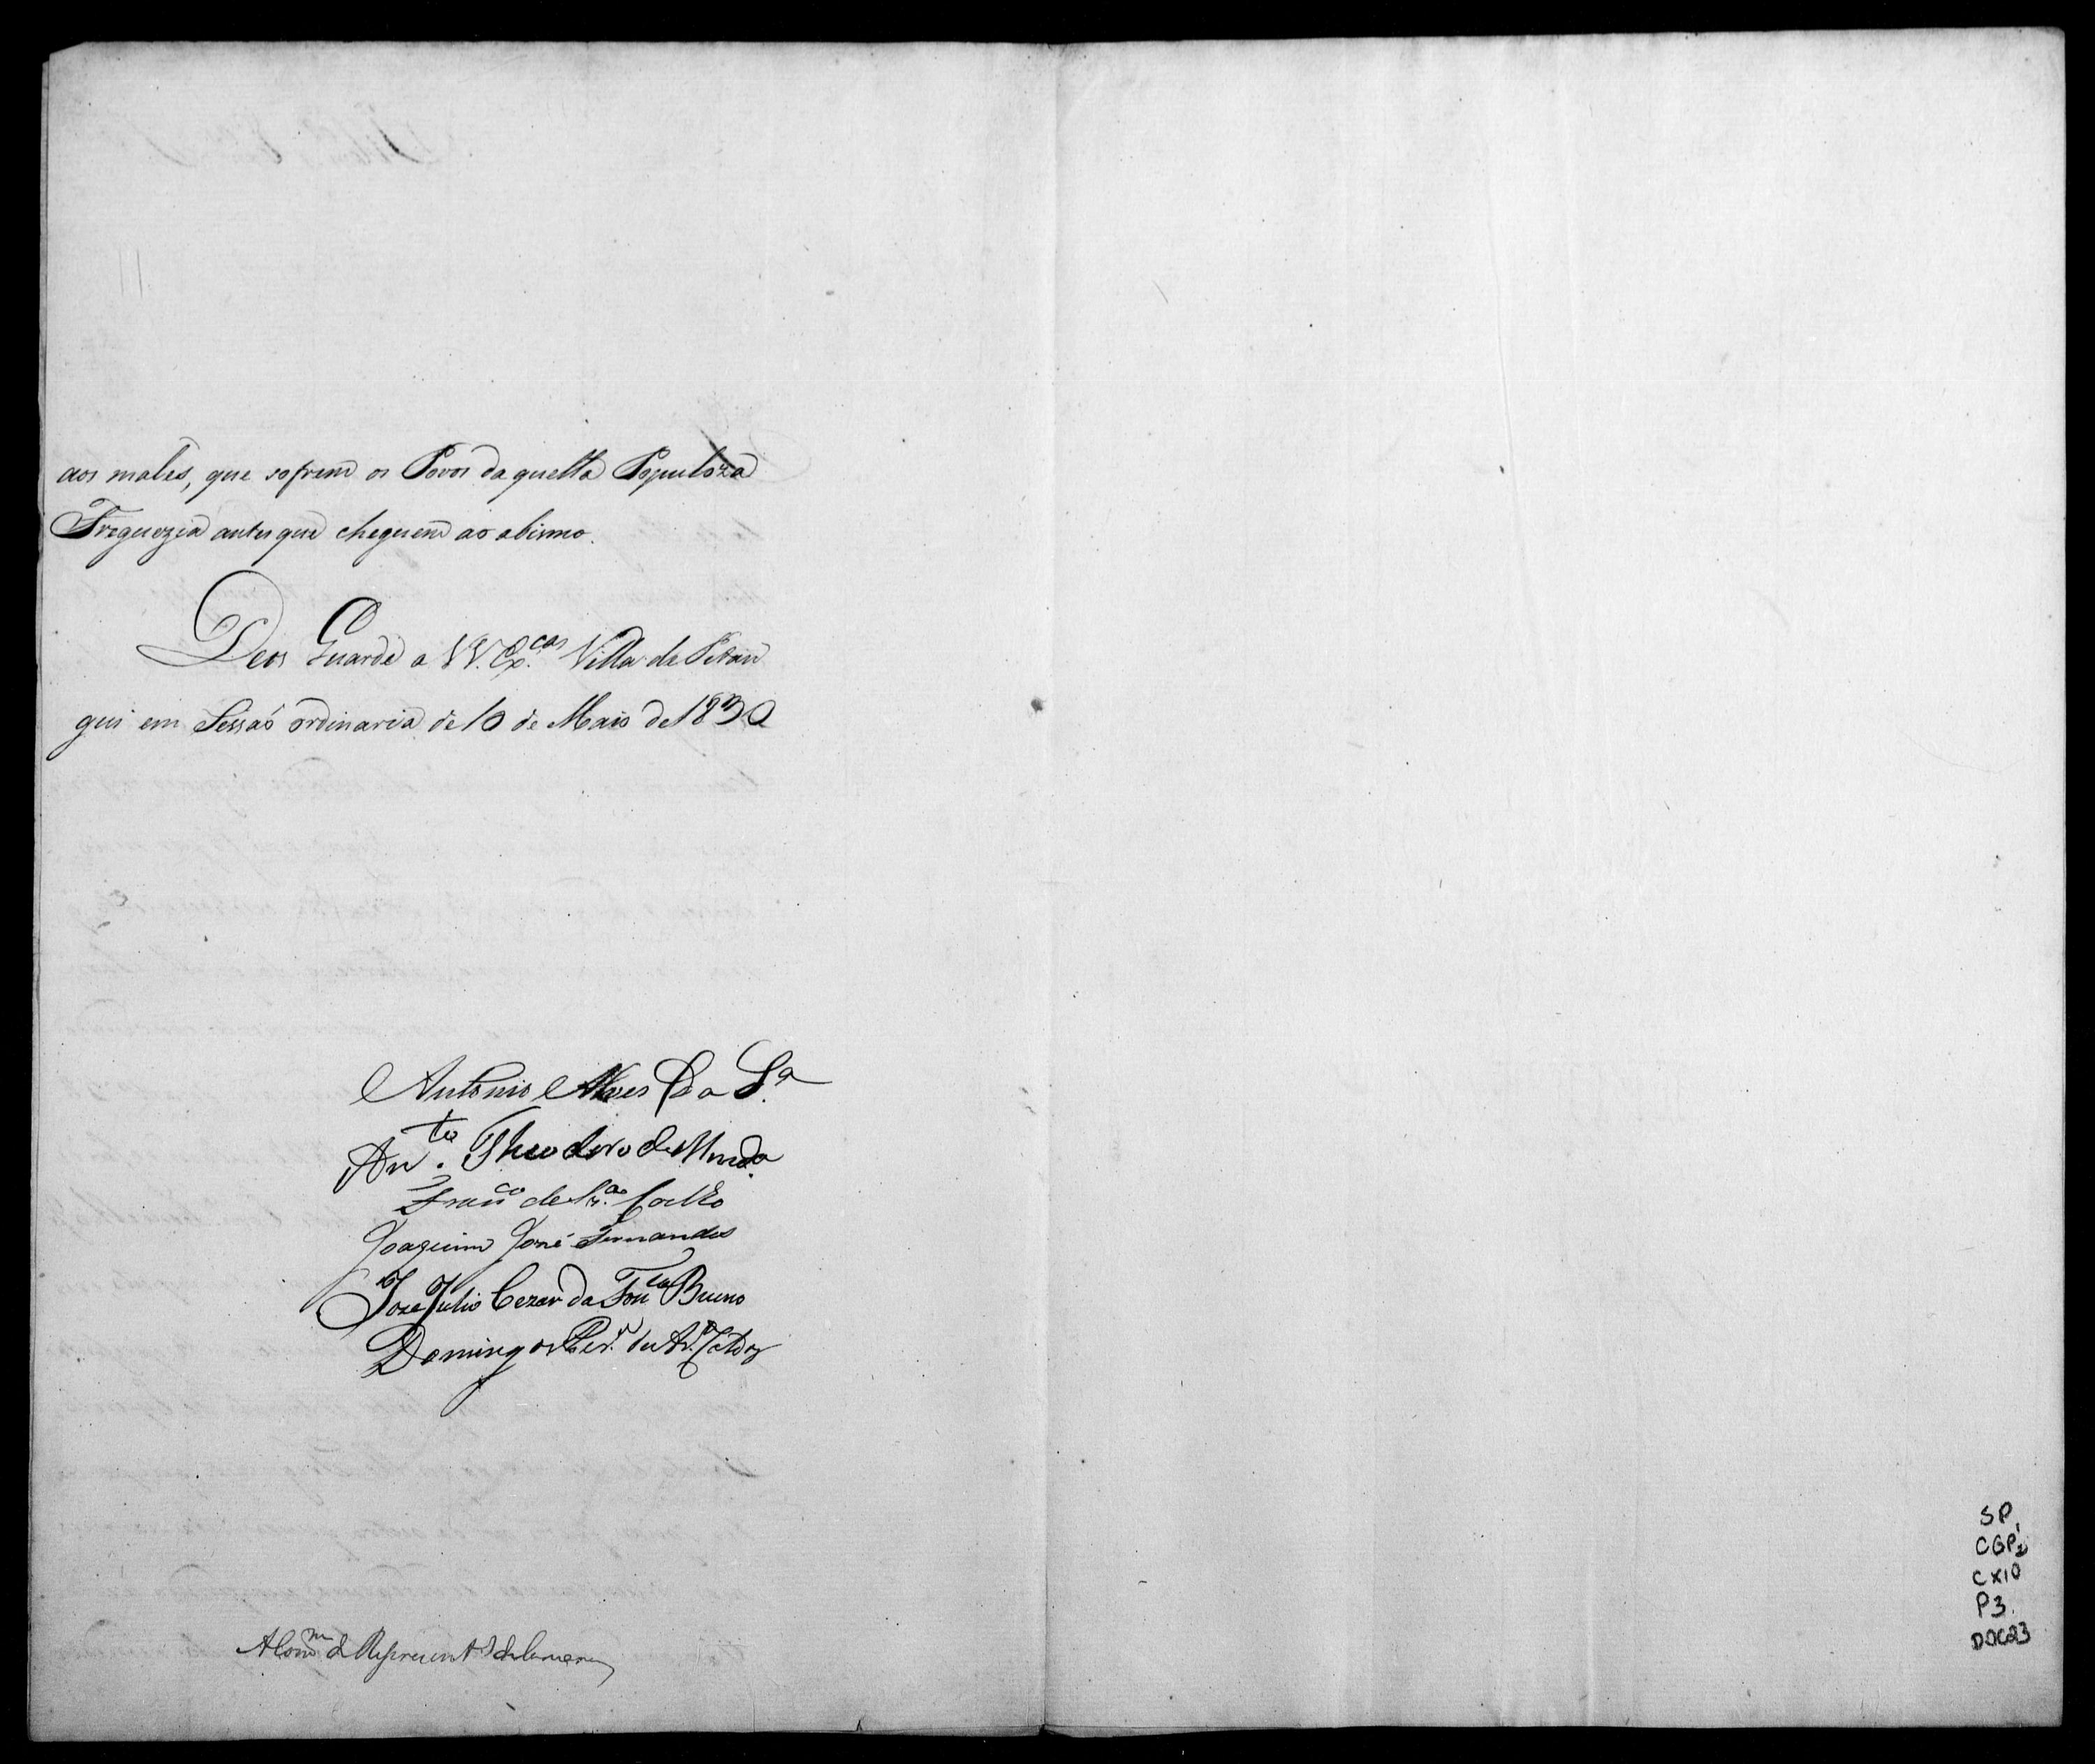 aos males, que sofrem os Povos da quella Populoza
Freguezia antes que cheguem ao abismo.
Deos Guarde a VV. Ex.cas Villa de Pitan
gui em Sessaõ ordinaria de 10 de Maio de 1830
Antonio Alves da S.a
An.to Theodoro de Mend.a
Fran.co de Coelho
Joaquim José Fernandes
Joze Julio Cezar da Fon.ca Bueno
Domingos Per.a
A Com.m de Represent.
SP
CGP1
CX10
P3
DOC23